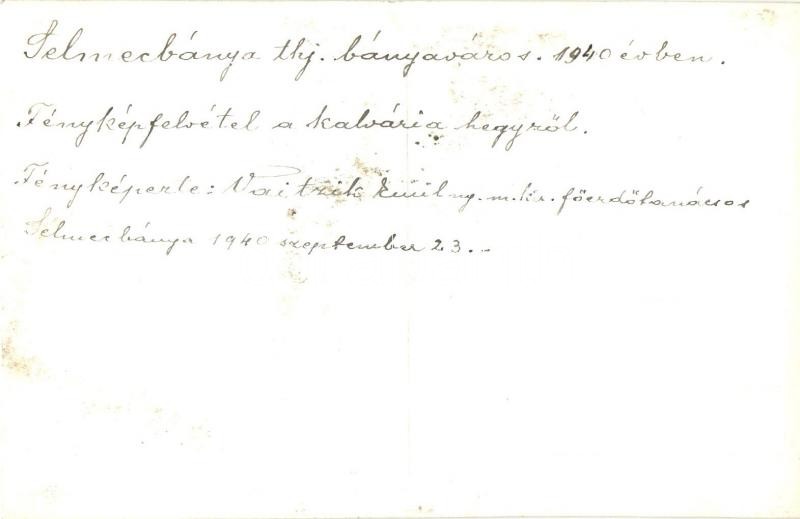 Selmecbánya thj. bányaváros. 1940 évben.
Fényképfelvétel a kalvária hegyről.
Fényképezte: Vaitzik Emil ny. m. kir. főerdőtanácsos
Selmecbánya 1940 szeptember 23. -